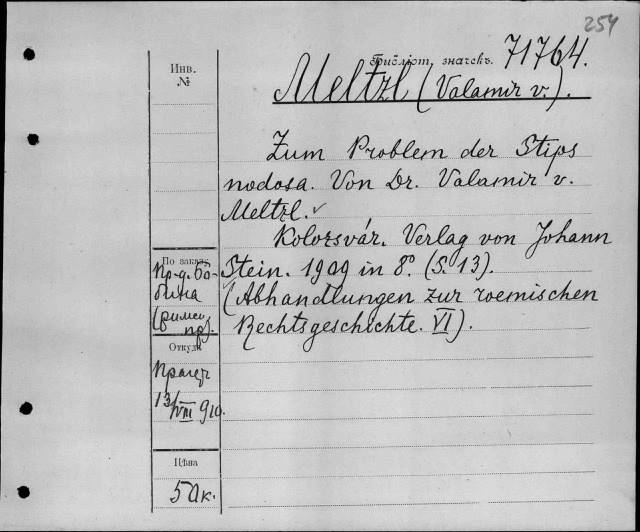 254
Инв.
№
Библіот. значекъ. 71764.
Meltzl (Valamir v.).
Zum Problem der Stips
nodosa. Von Dr. Valamir v.
Meltzl.
Kolozsvár. Verlag von Johann
Stein. 1909 in 8°. (S. 13).
(Abhandlungen zur roemischen
Rechtsgeschichte. VI).
По заказу
Откуда
13/VIII 910.
Цѣна
5 ак.